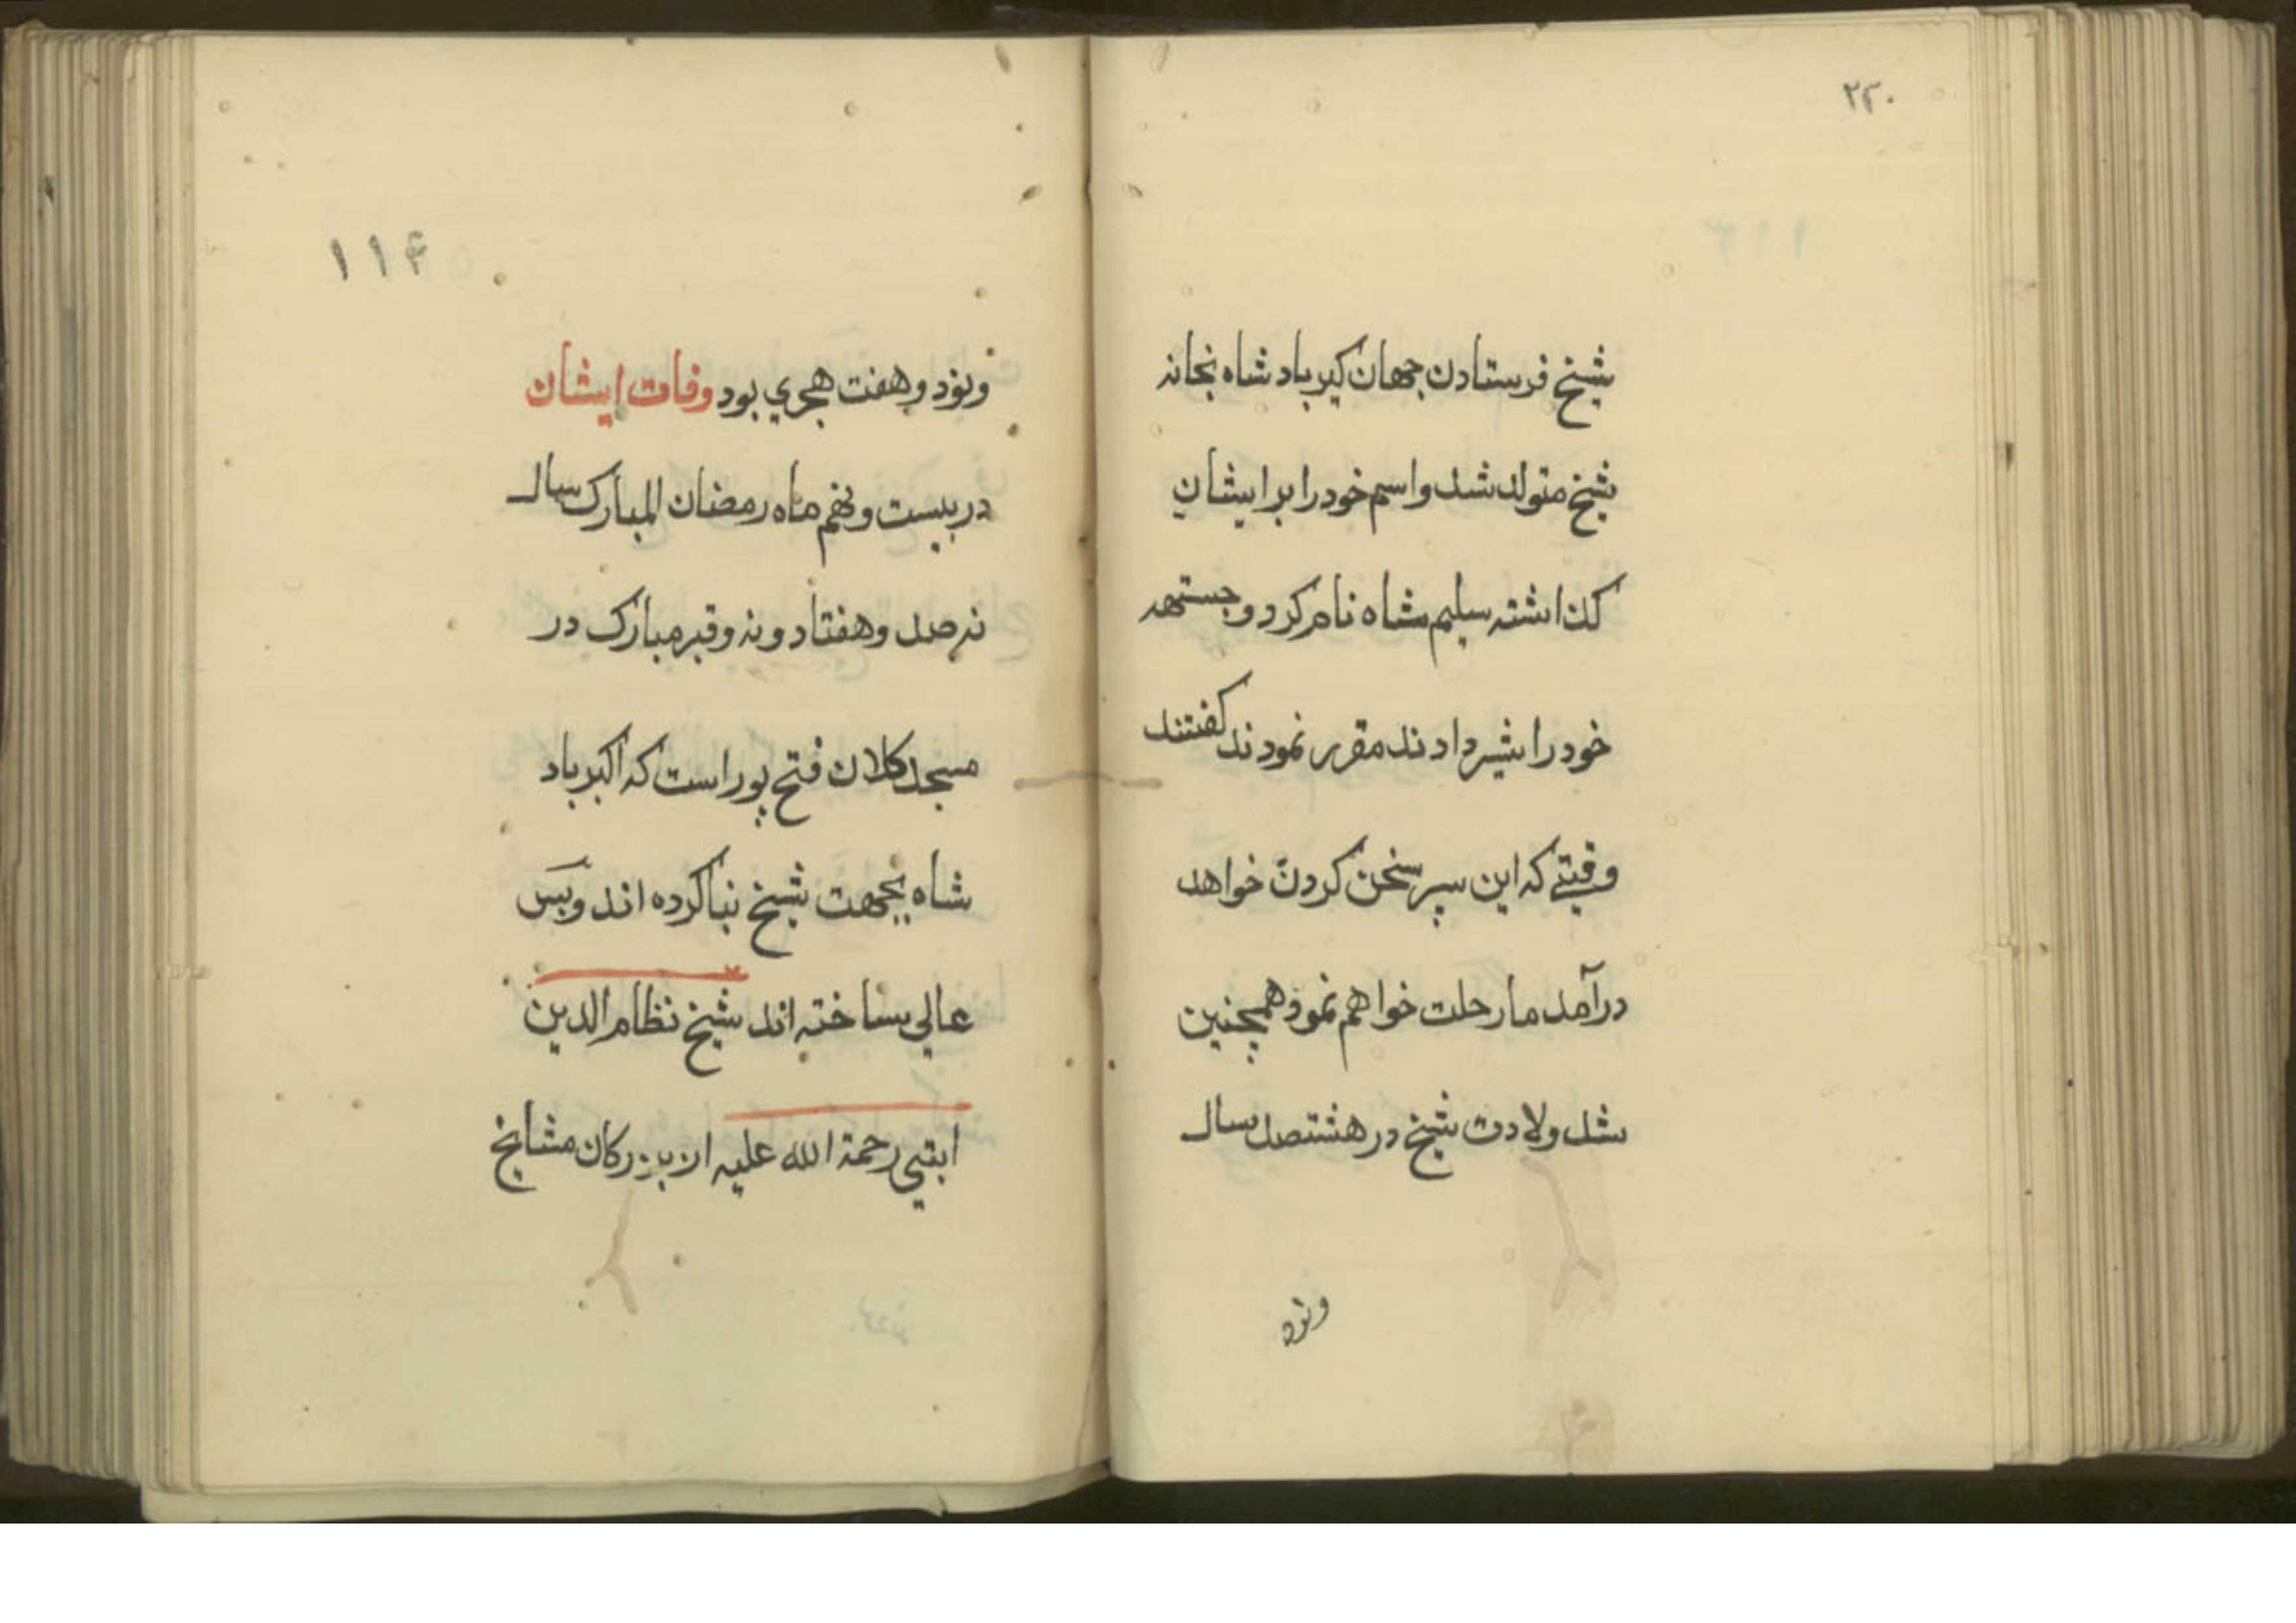 ۲۳۰
شیخ فرستادن جهان کیر باد شاه نجانه
شیخ متولد شد و اسم خود را بر ایشان
کذاشته سلیم شاه نام کرد و جستهه
خود را شیر دادند مقرر نمودند کفتند
وقتی که این سپر سخن کردن خواهد
درآمد ما رحلت خواهم نمود همچنین
شد ولادت شیخ در هشتصد سال
ونود
۱۱۴
ونود و هفت هجري بود وفات ایشان
در بیست و نهم ماه رمضان المبارک سال
نه صد و هفتاد و نه و قبر مبارک در
مسجد کلان فتح پور است که اکبر باد
شاه بجهت شیخ بنا کرده اند و بس
عالي ساخته اند شیخ نظام الدین
ابتیي رحمة الله علیه از بزرکان مشایخ